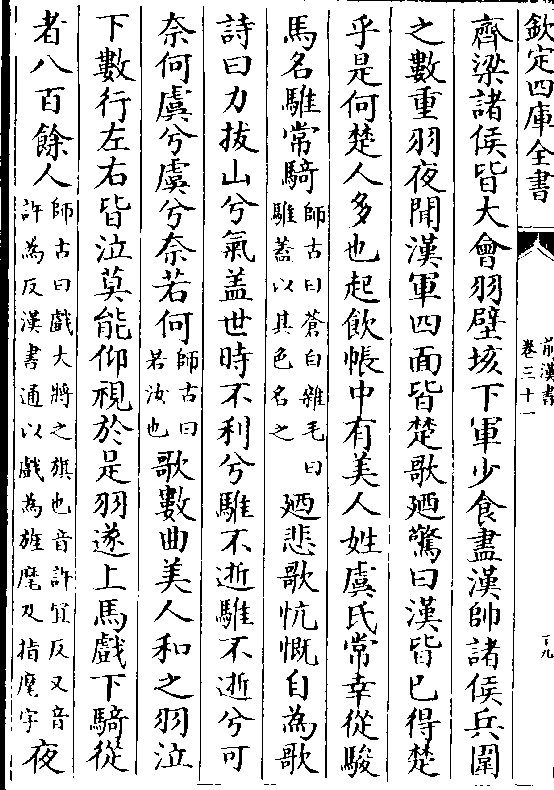 欽定四庫全書
前漢書
卷三十一
齊梁諸侯皆大會羽壁垓下軍少食盡漢帥諸侯兵圍
之數重羽夜聞漢軍四面皆楚歌廼驚曰漢皆已得楚
乎是何楚人多也起飲帳中有美人姓虞氏常幸從駿
馬名騅常騎師古曰蒼白雜毛曰騅蓋以其色名之廼悲歌忼慨自為歌
詩曰力拔山兮氣蓋世時不利兮騅不逝騅不逝兮可
奈何虞兮虞兮奈若何師古曰若汝也歌數曲美人和之羽泣
下數行左右皆泣莫能仰視於是羽遂上馬戲下騎從
者八百餘人師古曰戲大將之旗也音許宜反又音許為反漢書通以戲為旌麾及指麾字夜